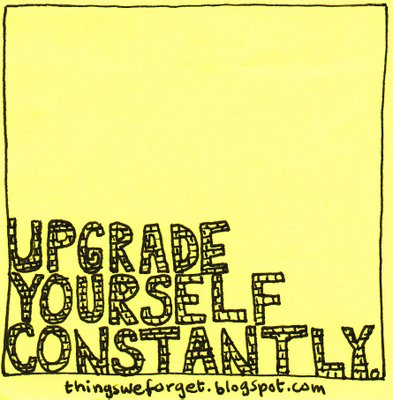 UPGRADE
YOURSELF
CONSTANTLY.
thingsweforget.blogspot.com